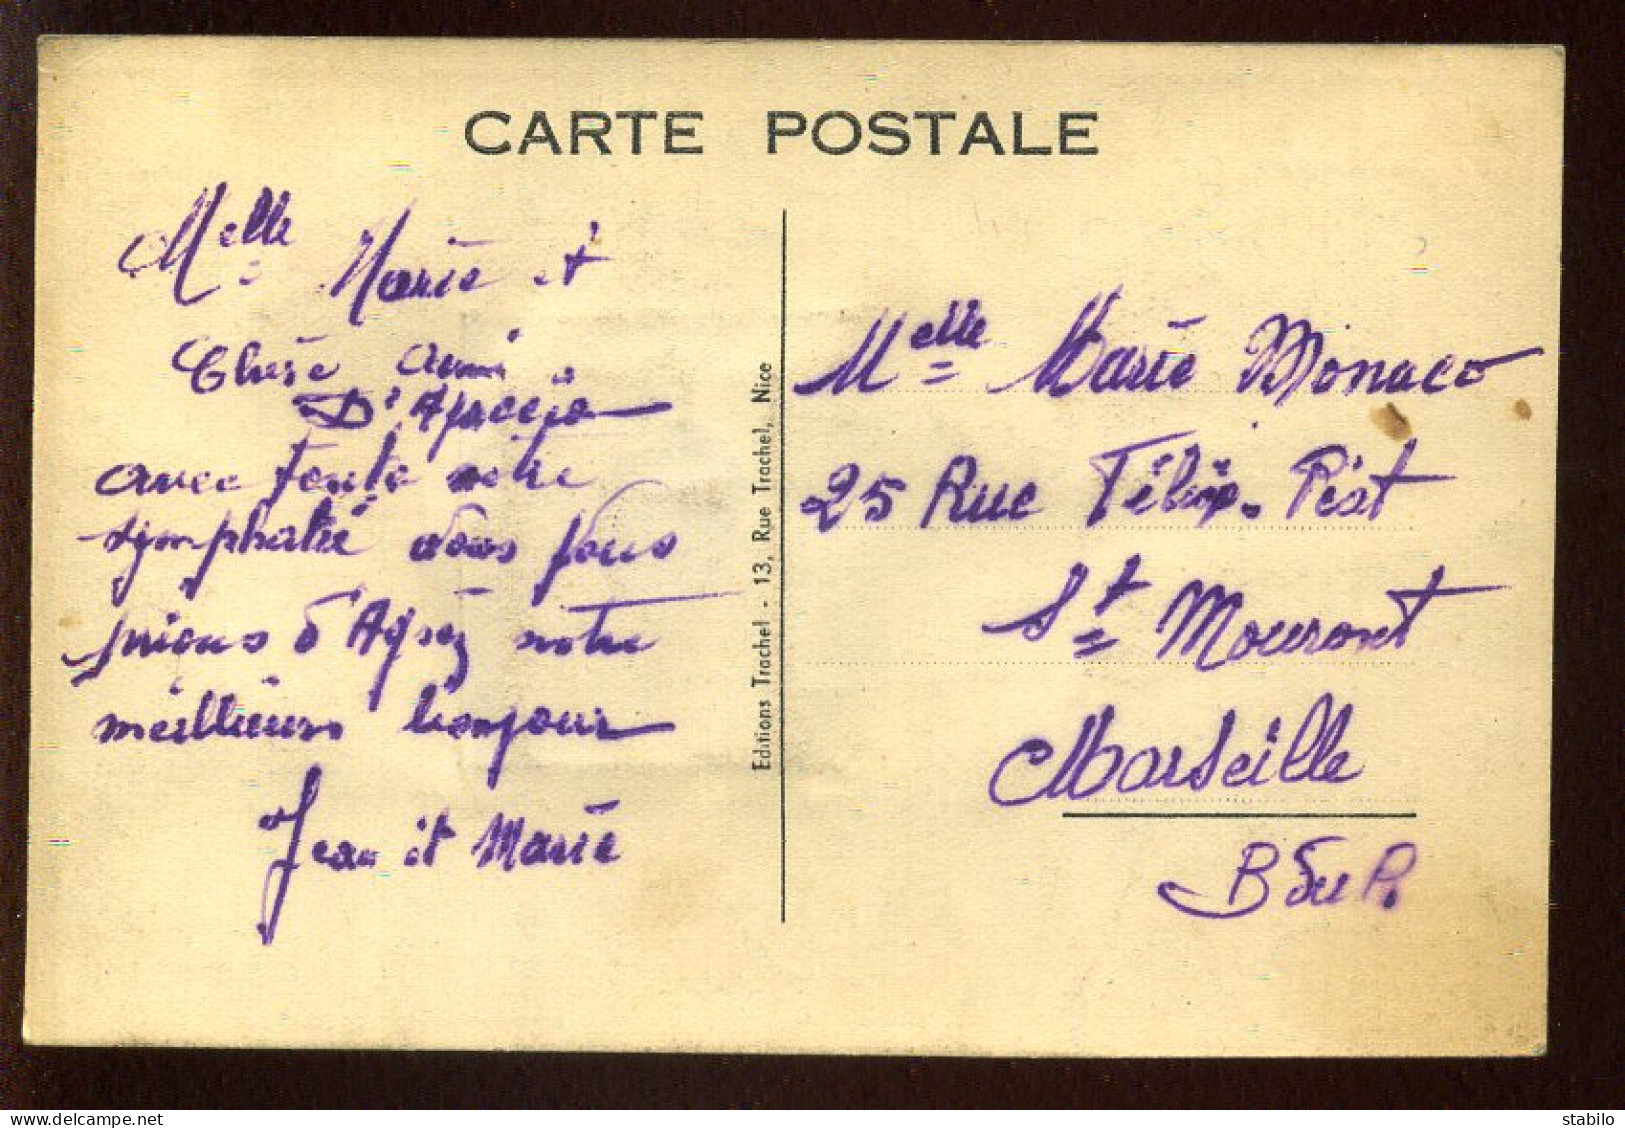 CARTE POSTALE
Melle Marie et
Chère Amie
D'Ajaccio
avec toute notre
symphatié vous nous
prions d'Agrez notre
meilleurs bonjour
Jean et Marie
Editions Trachel - 13, Rue Trachel, Nice
Melle Marie Monaco
25 Rue Félix. Piat
St Mouront
Marseille
B du R.
stabilo
delcampe.net